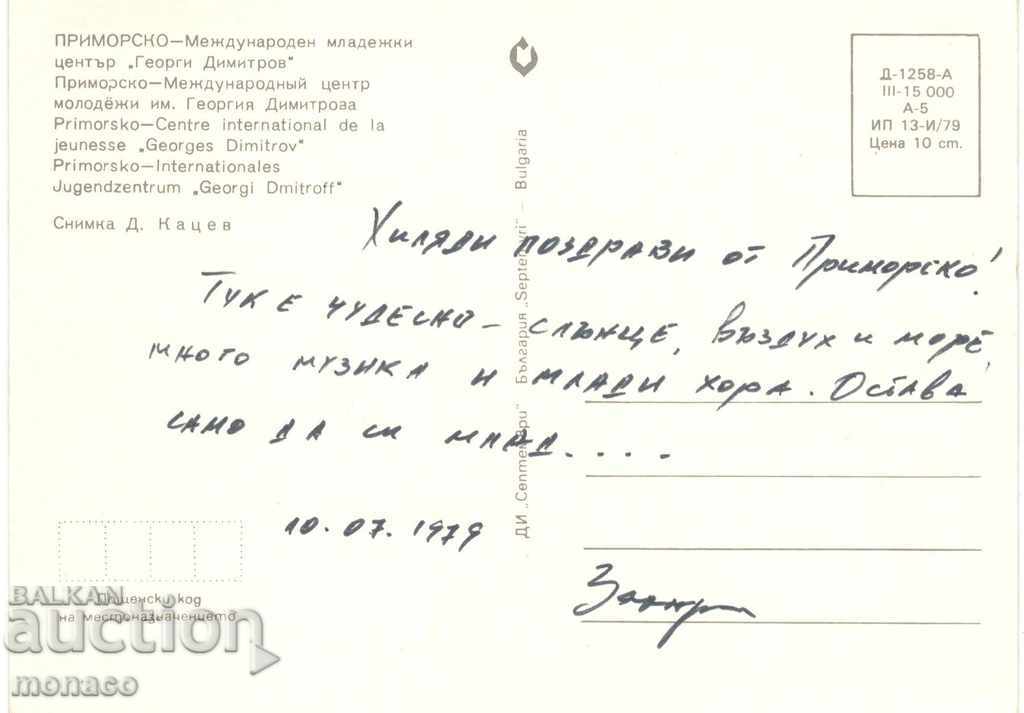 ПРИМОРСКО—Международен младежки
център „Георги Димитров"
Приморско—Международный центр
молодёжи им. Георгия Димитрова
Primorsko—Centre international de la
jeunesse „Georges Dimitrov"
Primorsko—Internationales
Jugendzentrum „Georgi Dmitroff"
Снимка Д. Кацев
Д-1258-А
III-15 000
А-5
ИП 13-И/79
Цена 10 ст.
ДИ „Септември" България „Septemvri" — Bulgaria
Хиляди поздрави от Приморско!
Тук е чудесно – слънце, въздух и море,
много музика и млади хора. Остава
само да си млад....
10.07.1979
Пощенски код
на местоназначението
BALKAN
auction
monaco